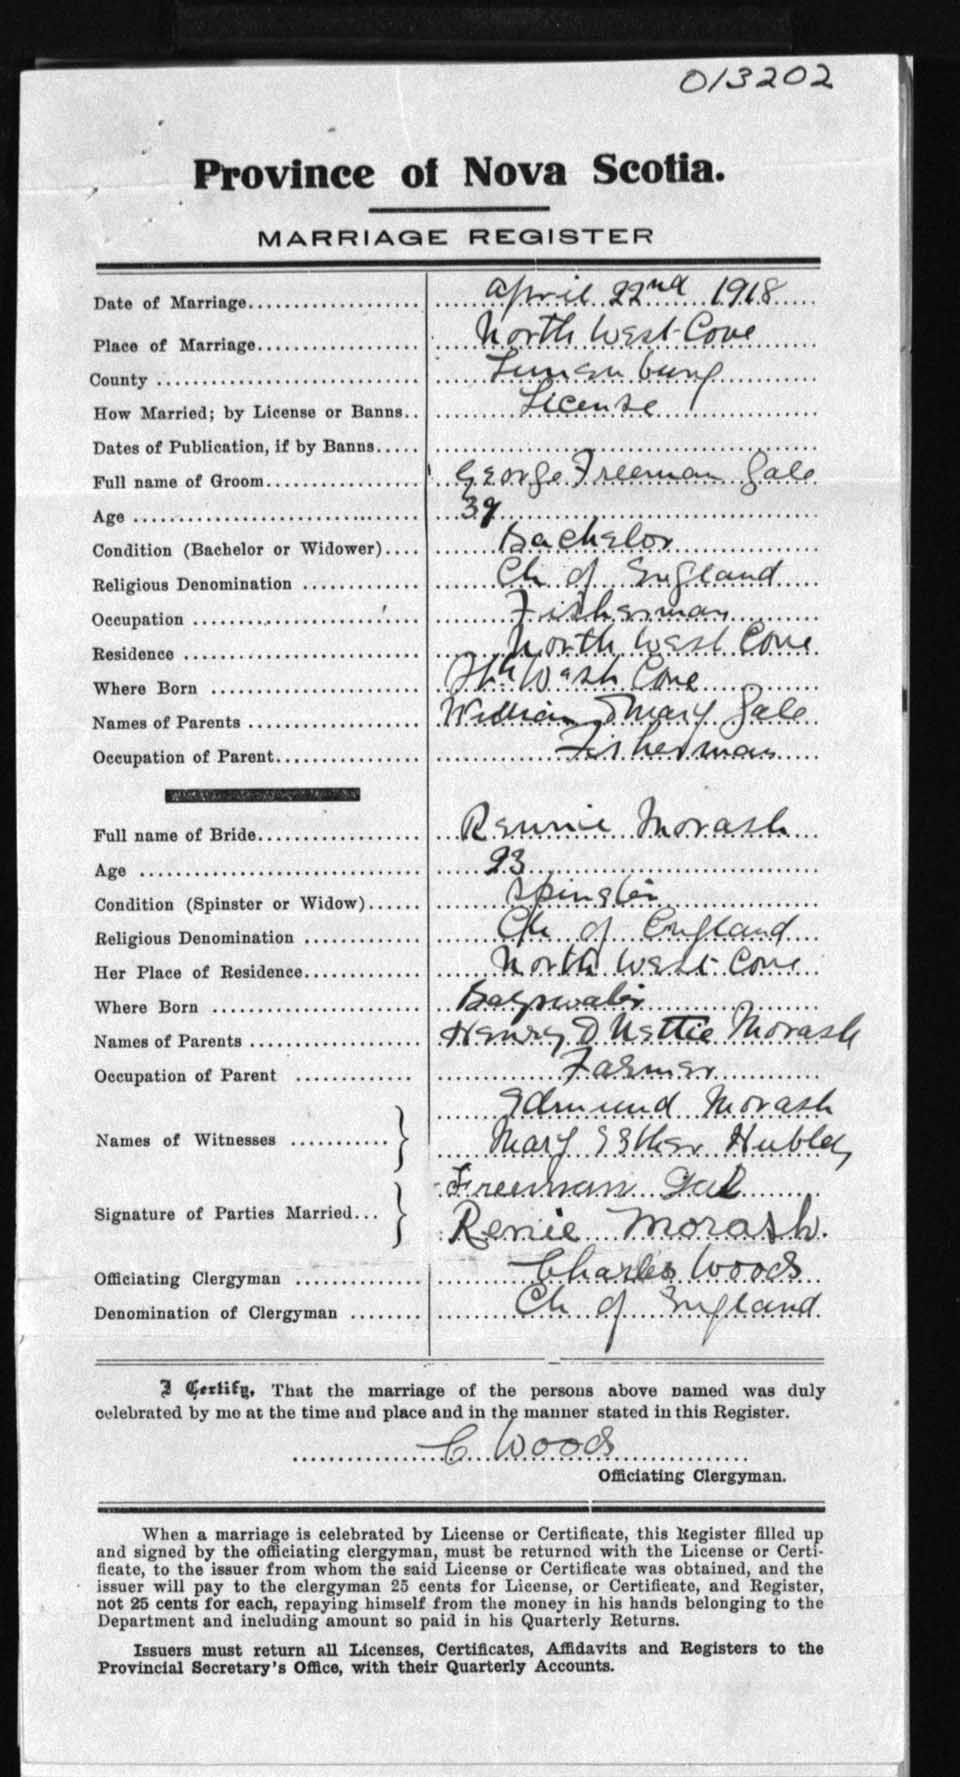 013202
Province of Nova Scotia.
MARRIAGE REGISTER
Date of Marriage.................... April 22nd 1918
Place of Marriage................... North West Cove
County .............................. Lunenburg
How Married; by License or Banns.. License
Dates of Publication, if by Banns.....
Full name of Groom.................. George Freeman Gale
Age ................................. 39
Condition (Bachelor or Widower).... Bachelor
Religious Denomination ............. Ch of England
Occupation .......................... Fisherman
Residence ........................... North West Cove
Where Born ......................... Nth West Cove
Names of Parents ................... William & Mary Gale
Occupation of Parent................. Fisherman
Full name of Bride................... Rennie Morash
Age ................................. 23
Condition (Spinster or Widow)...... Spinster
Religious Denomination ............. Ch of England
Her Place of Residence.............. North West Cove
Where Born ......................... Bayswater
Names of Parents ................... Henry & Nettie Morash
Occupation of Parent ............... Farmer
Edmund Morash
Names of Witnesses ........... } Mary Esther Hubley
Freeman Gal
Signature of Parties Married... } Renie Morash.
Officiating Clergyman .............. Charles Woods
Denomination of Clergyman ........ Ch of England
I Certify, That the marriage of the persons above named was duly
celebrated by me at the time and place and in the manner stated in this Register.
C Woods
Officiating Clergyman.
When a marriage is celebrated by License or Certificate, this Register filled up
and signed by the officiating clergyman, must be returned with the License or Certi-
ficate, to the issuer from whom the said License or Certificate was obtained, and the
issuer will pay to the clergyman 25 cents for License, or Certificate, and Register,
not 25 cents for each, repaying himself from the money in his hands belonging to the
Department and including amount so paid in his Quarterly Returns.
Issuers must return all Licenses, Certificates, Affidavits and Registers to the
Provincial Secretary's Office, with their Quarterly Accounts.